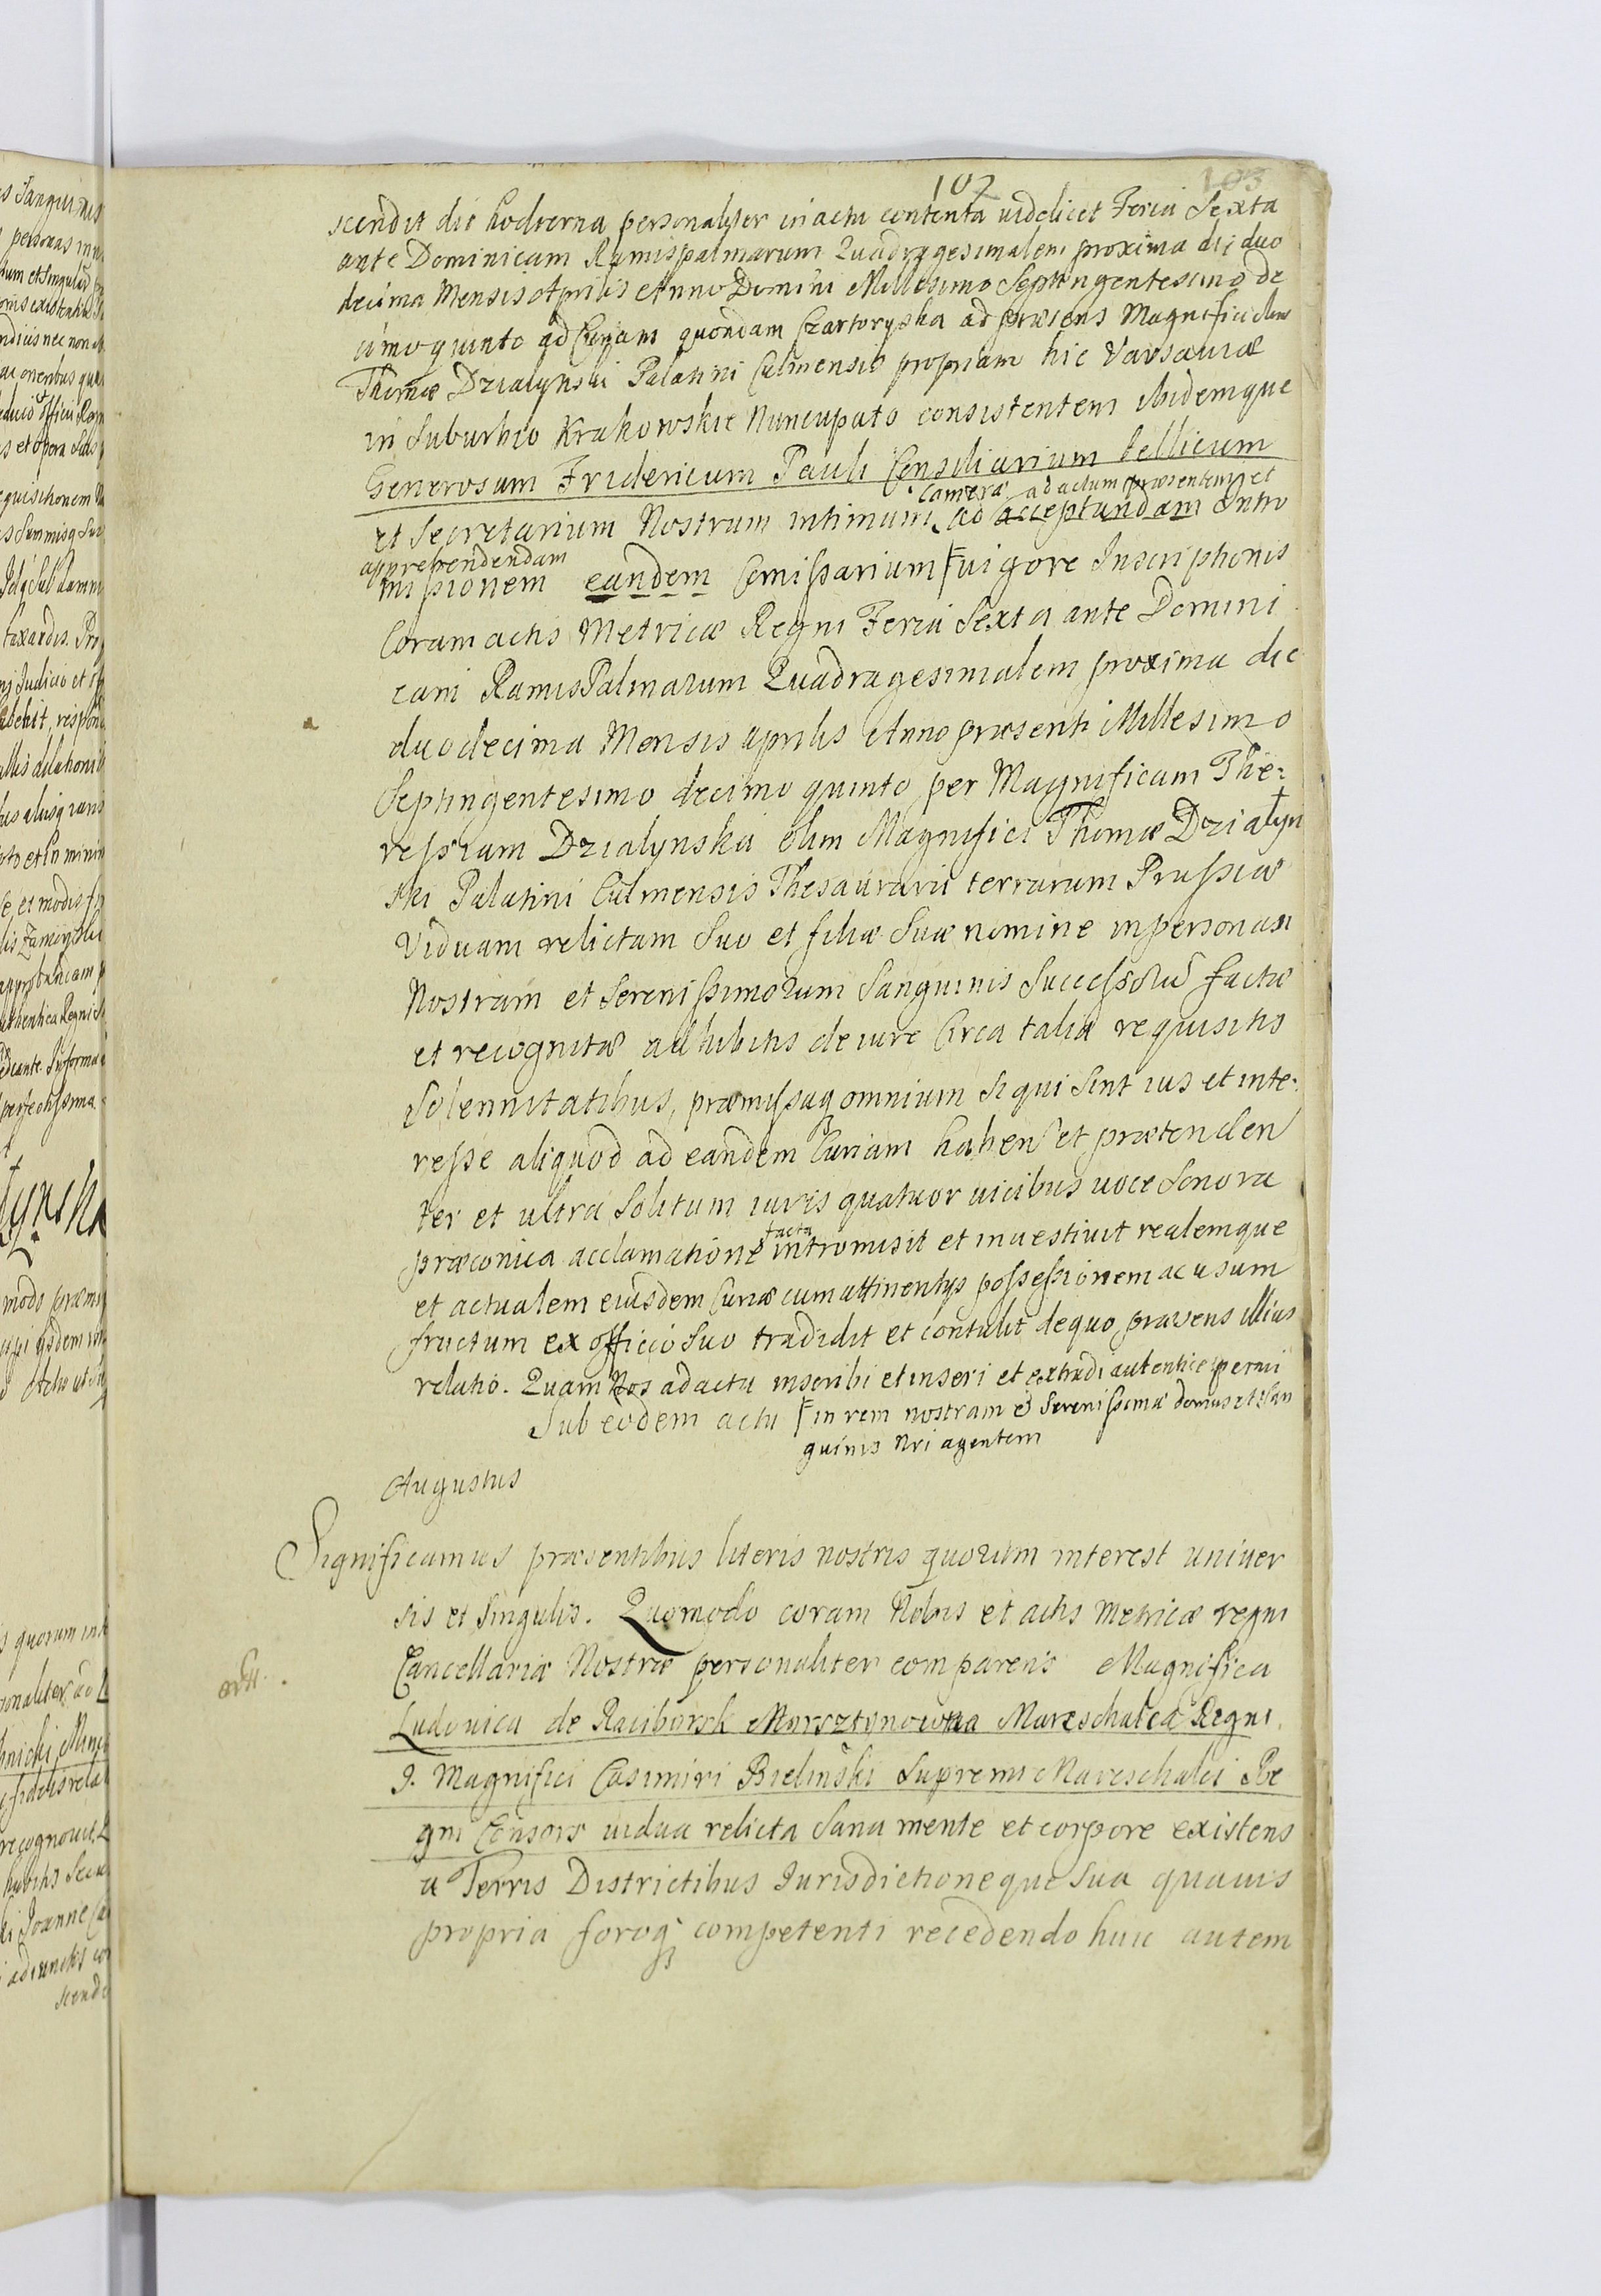 102 103
scendit die hodierna personaliter in actu contenta videlicet Feria Sexta
ante Dominicam Ramispalmarum Quadragesimalem proxima die duo
decima Mensis Aprilis Anno Domini Millesimo Septingentesimo de
cimo quinto ad Curiam quondam Czartoryska ad præsens Magnifici olim
Thomæ Dzialynski Palatini Culmensis propriam hic Varsaviæ
in Suburbio Krakowskie Nuncupato consistentem ibidemque
Generosum Fridericum Pauli Consiliarium bellicum
Cameræ ad actum præsentem et
et Secretarium Nostrum intimum ad acceptandam Intro
apprehendendam
missionem eandem Comissarium vigore Inscriptionis
Coram actis Metricæ Regni Feria Sexta ante Domini
cam RamisPalmarum Quadragesimalem proxima die
duodecima Mensis aprilis Anno præsenti Millesimo
Septingentesimo decimo quinto per Magnificam The:
ressiam Dzialynska olim Magnifici Thomæ Dzialyn
ski Palatini Culmensis Thesaurarii terrarum Prussiæ
Viduam relictam Suo et filiæ Suæ nomine in personam
Nostram et Serenissimorum Sanguinis Successorū factæ
et recognitæ adhibitis de iure Circa talia requisitis
Solennitatibus, præmissaq omnium si qui Sint ius et inte:
resse aliquod ad eandem Curiam haben et prætenden
ter et ultra Solitum iuris quatuor vicibus voce Sonora
facta
præconica acclamatione intromisit et investivit realemque
et actualem eiusdem Curiæ cum attinentys possessionem ac usum
fructum ex officio Suo tradidit et contulit de quo præsens illius
relatio. Quam Nos ad acta inscribi et inseri et extradi autentice permi
Sub eodem actu in rem nostram & Serenissimæ domus et San
guinis Nri agentem
Augustus
Significamus præsentibus literis nostris quorum interest univer
sis et Singulis. Quomodo coram Nobis et actis Metricæ regni
Cancellariæ Nostræ personaliter comparens Magnifica
Ludovica de Raciborsk Morsztynowna Mareschalca Regni
Magnifici Casimiri Bielinski Supremi Mareschalci Re
gni Consors vidua relicta Sana mente et corpore existens
a Terris Districtibus Jurisdictioneque Sua quavis
propria foroq competenti recedendo huic autem